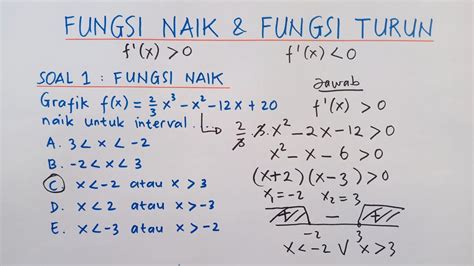 FUNGSI NAIK & FUNGSI TURUN
f'(x) > 0
f'(x) < 0
SOAL 1 : FUNGSI NAIK
Grafik f(x) = 2/3 x³ - x² - 12x + 20
naik untuk interval...
A. 3 < x < -2
B. -2 < x < 3
C. x < -2 atau x > 3
D. x < 2 atau x > -3
E. x < -3 atau x > -2
Jawab
f'(x) > 0
2/3 . 3 . x² - 2x - 12 > 0
x² - x - 6 > 0
(x+2) (x-3) > 0
x₁ = -2 x₂ = 3
-
-2 3
x < -2 V x > 3